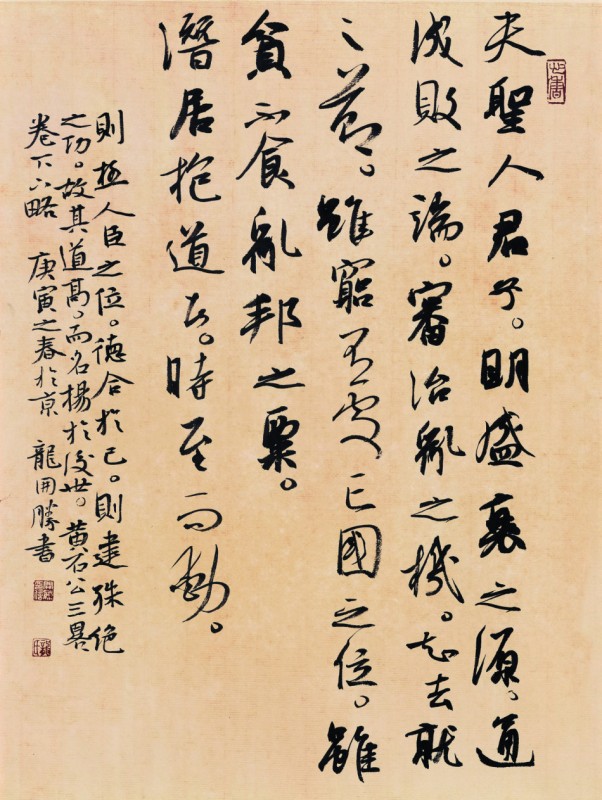 夫聖人君子。明盛衰之源。通
成敗之端。審治亂之機。知去就
之節。雖窮不處亡國之位。雖
貧不食亂邦之粟。
潛居抱道者。時至而動。
則極人臣之位。德合於己。則建殊絕
之功。故其道高。而名楊於後世。黃石公三畧
卷下下略 庚寅之春於京 龍開勝書